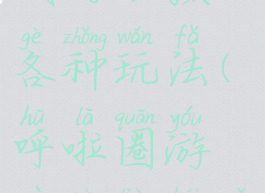 gè zhǒng wán fǎ
各种玩法(
hū lā quān yóu
呼啦圈游